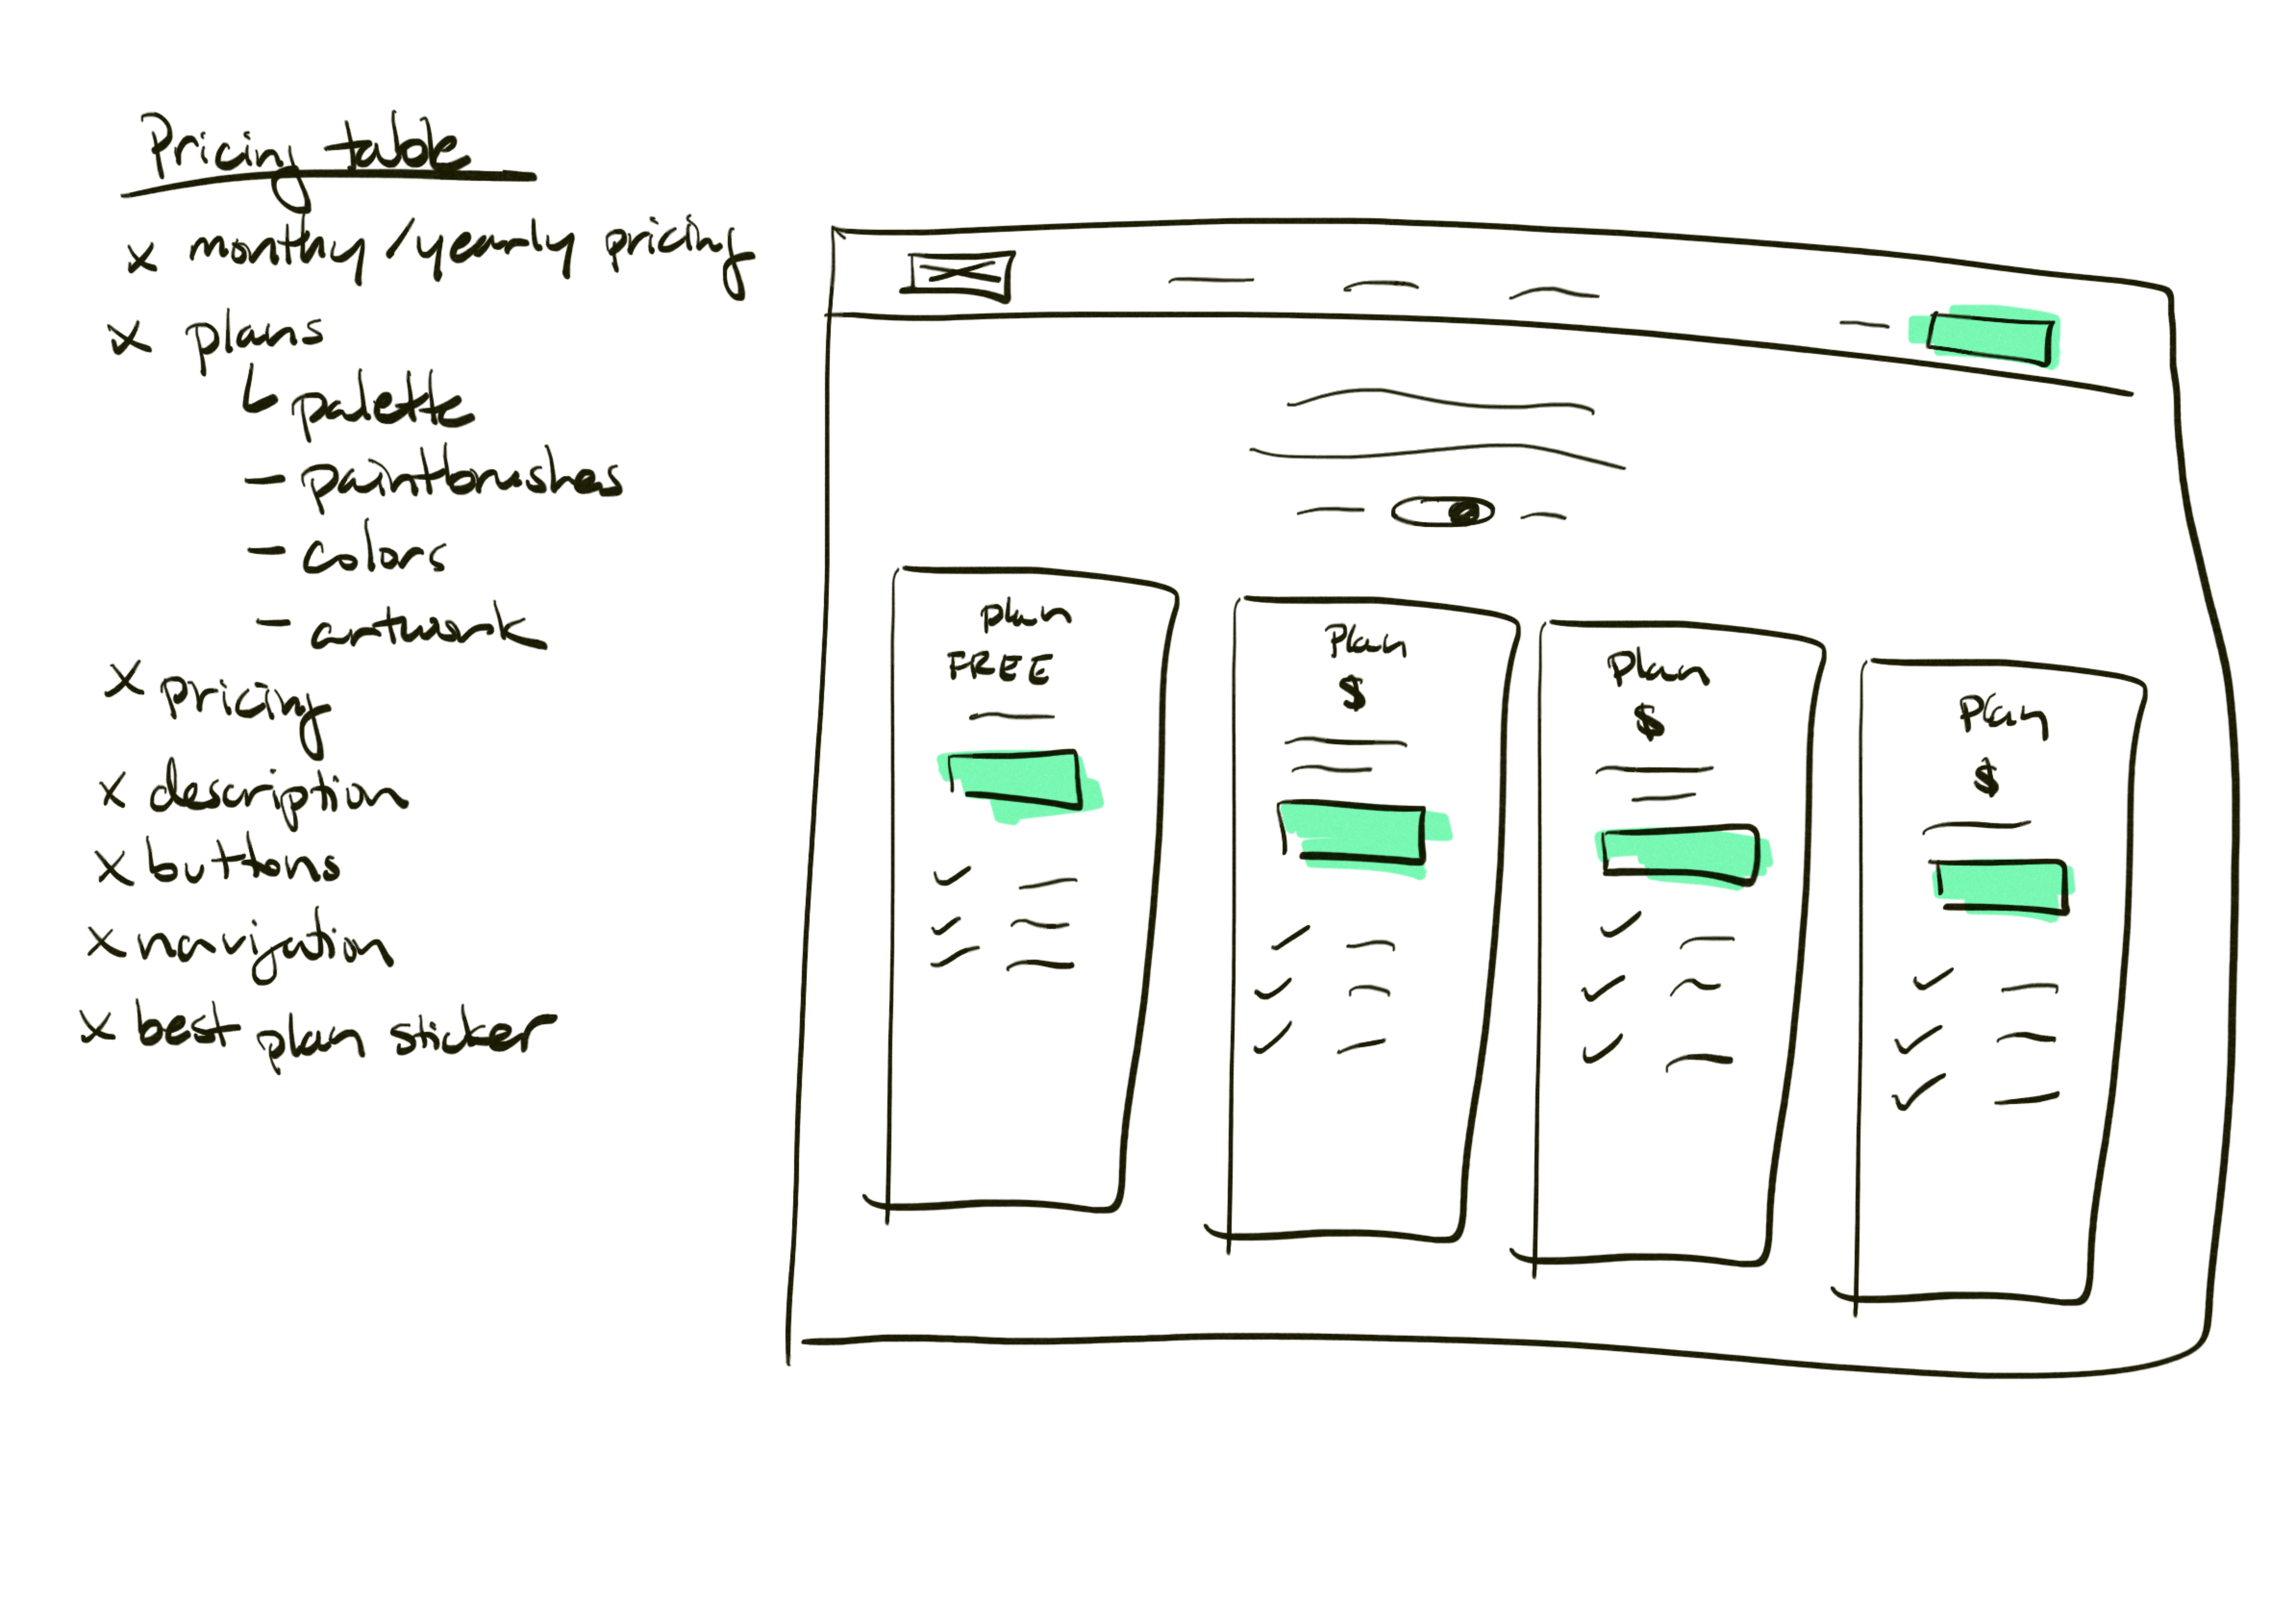 Pricing table
x monthly/yearly pricing
x plans
palette
- paintbrushes
- colors
- artwork
x pricing
x description
x buttons
x navigation
x best plan sticker
plan
FREE
Plan
$
Plan
$
Plan
$